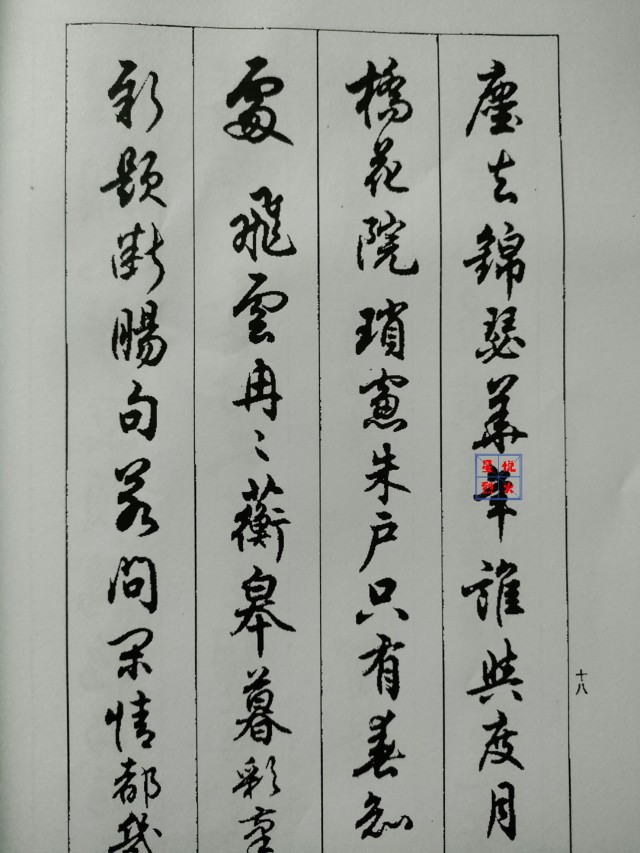 塵去錦瑟華年誰與度月
橋花院瑣窗朱戶只有春知
處 飛雲冉〻蘅皋暮彩
新題斷腸句若問閑情都幾
十八